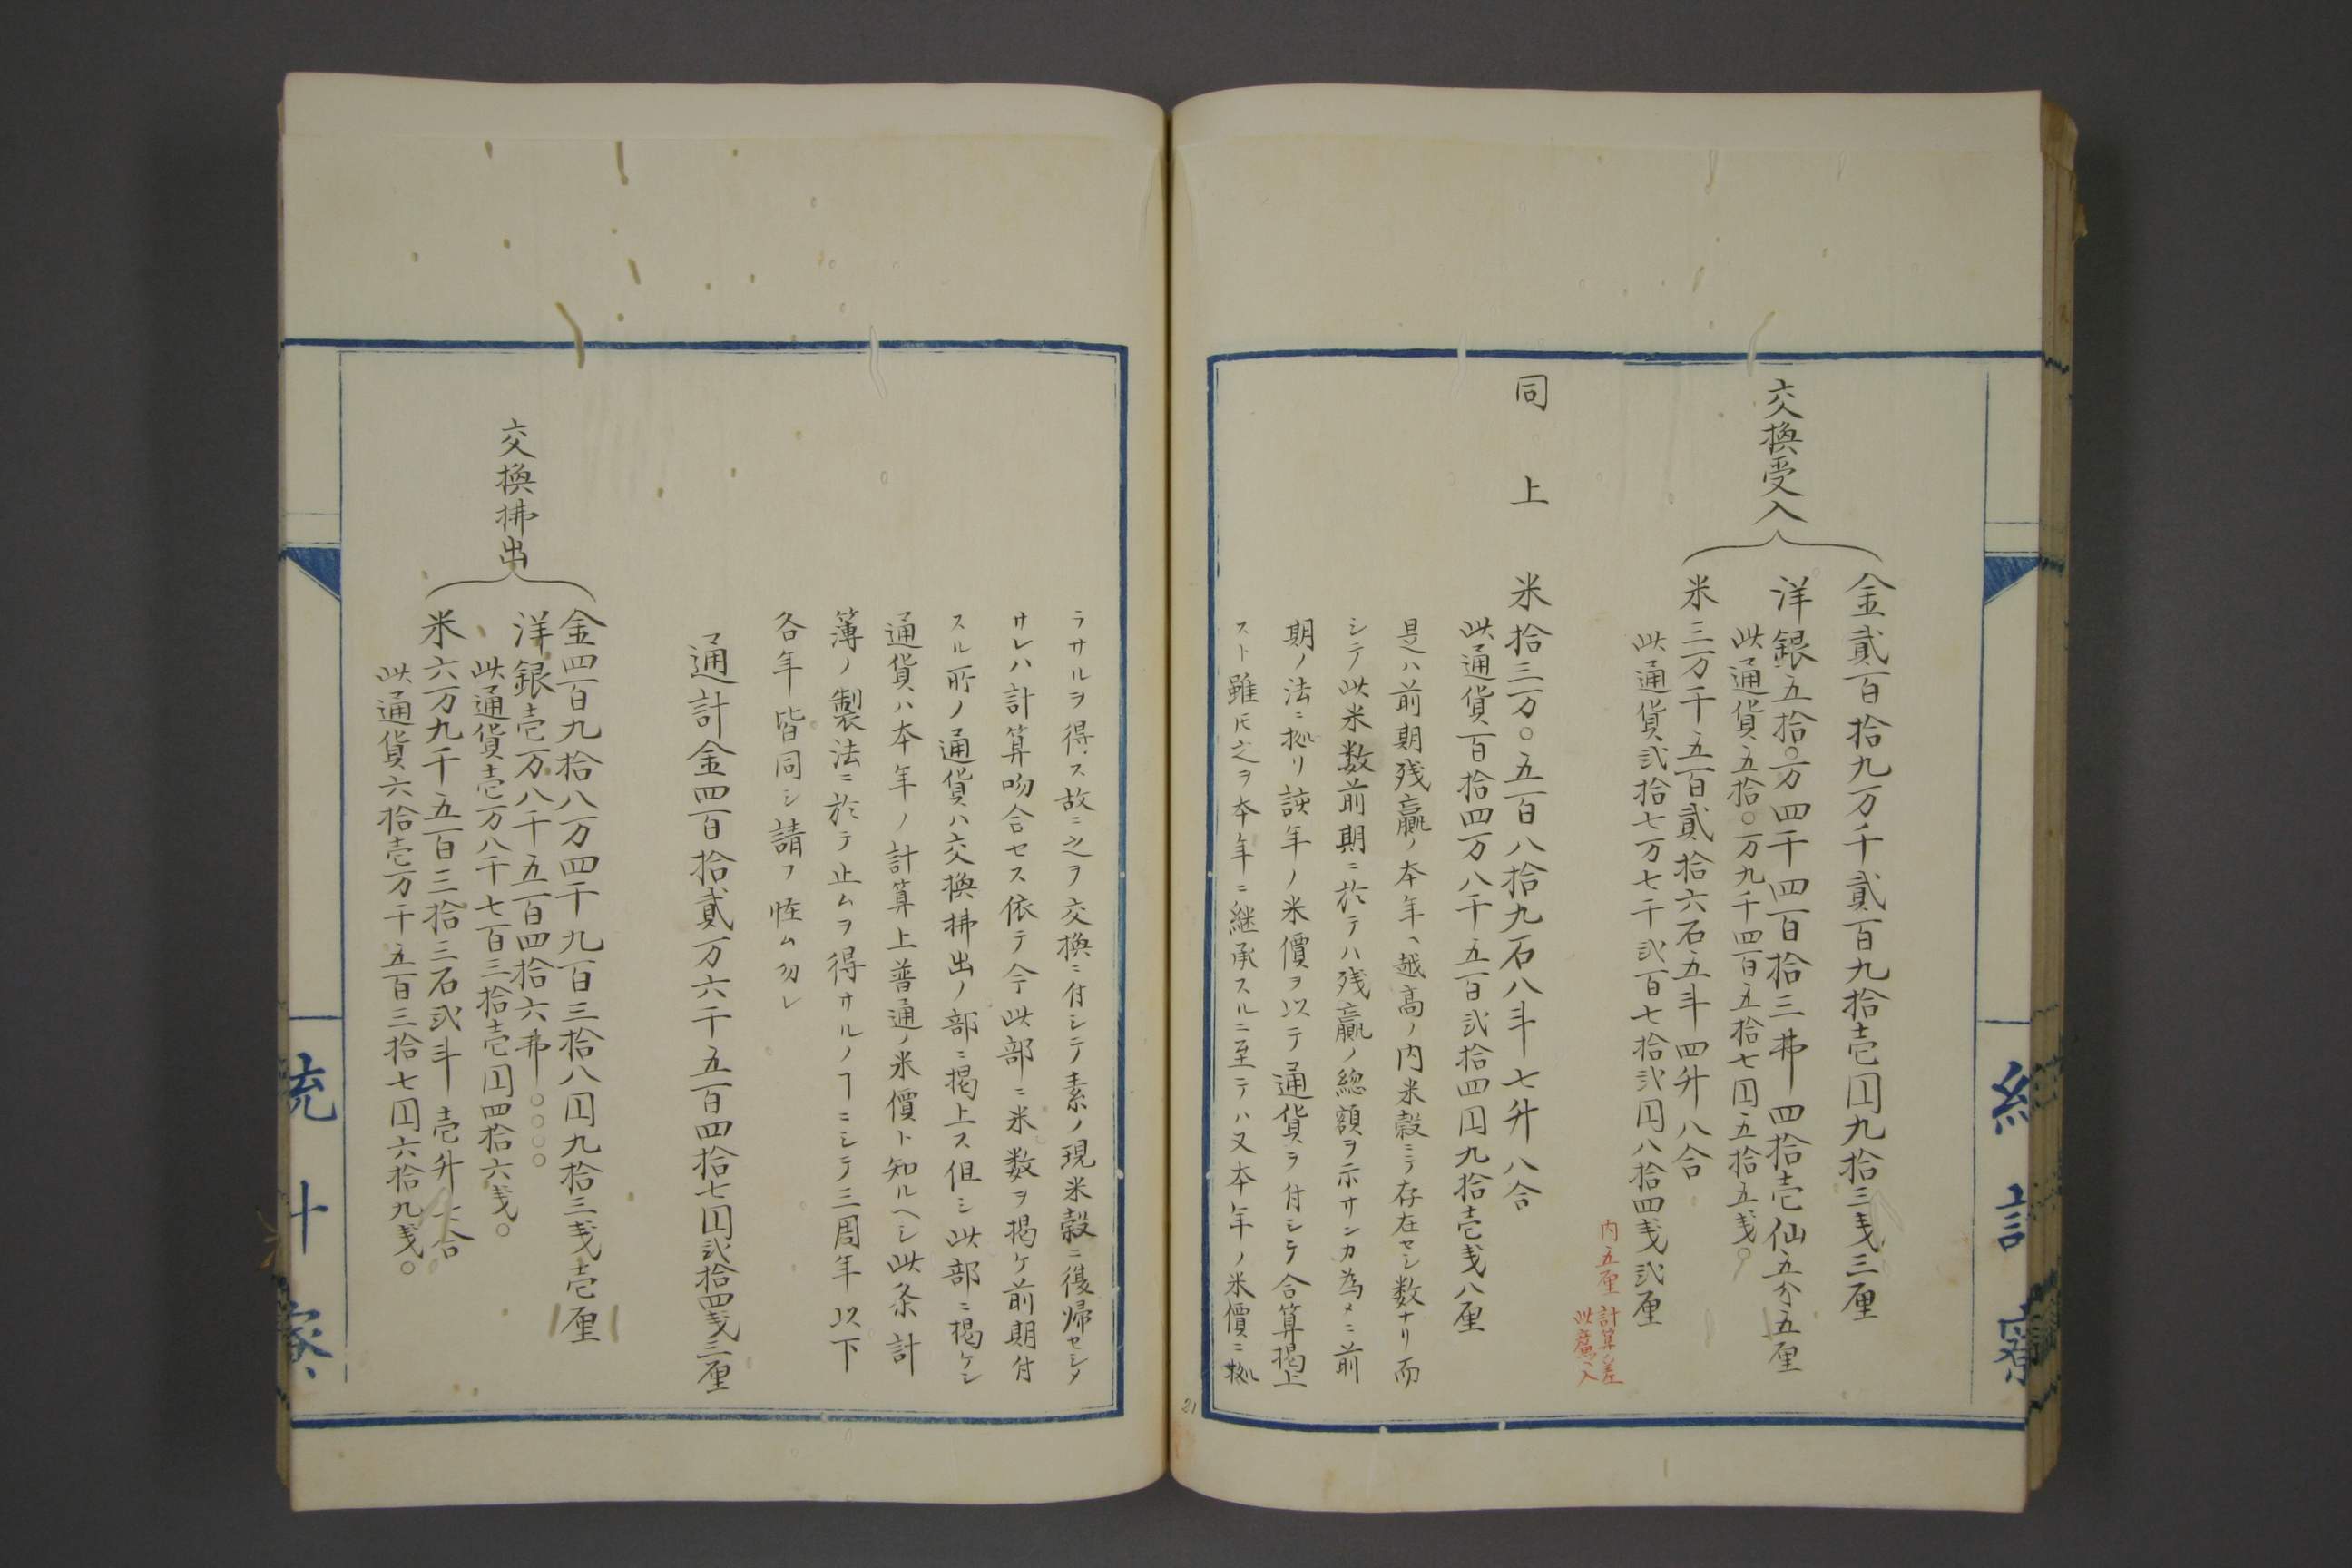 交換受入
金貳百拾九万千貳百九拾壱円九拾三戋三厘
洋銀五拾〇万四千四百拾三弗四拾壱仙五分五厘
此通貨五拾〇万九千四百五拾七円五拾五戋〇
米三万千五百貳拾六石五斗四升八合
此通貨弐拾七万七千弐百七拾弐円八拾四戋弐厘
内五厘計算ノ差
此廉ヘ入
同上 米拾三万〇五百八拾九石八斗七升八合
此通貨百拾四万八千五百弐拾四円九拾壱戋八厘
是ハ前期残贏ノ本年ヘ越高ノ内米穀ニテ存在セシ数ナリ而
シテ此米数前期ニ於テハ残贏ノ總額ヲ示サンカ為メニ前
期ノ法ニ拠リ該年ノ米價ヲ以テ通貨ヲ付シテ合算掲上
スト雖𪜈之ヲ本年ニ継承スルニ至テハ又本年ノ米價ニ拠
21
ラサルヲ得ス故ニ之ヲ交換ニ付シテ素ノ現米穀ニ復帰セシメ
サレハ計算吻合セス依テ今此部ニ米数ヲ掲ケ前期付
スル所ノ通貨ハ交換拂出ノ部ニ掲上ス但シ此部ニ掲ケシ
通貨ハ本年ノ計算上普通ノ米價ト知ルヘシ此条計
簿ノ製法ニ於テ止ムヲ得サルノヿニシテ三周年以下
各年皆同シ請フ恠ム勿レ
通計金四百拾貳万六千五百四拾七円弐拾四戋三厘
交換拂出
金四百九拾八万四千九百三拾八円九拾三戋壱厘
洋銀壱万八千五百四拾六弗〇〇〇〇
此通貨壱万八千七百三拾壱円四拾六戋〇
米六万九千五百三拾三石弐斗壱升七合
此通貨六拾壱万千五百三拾七円六拾九戋〇
統計寮